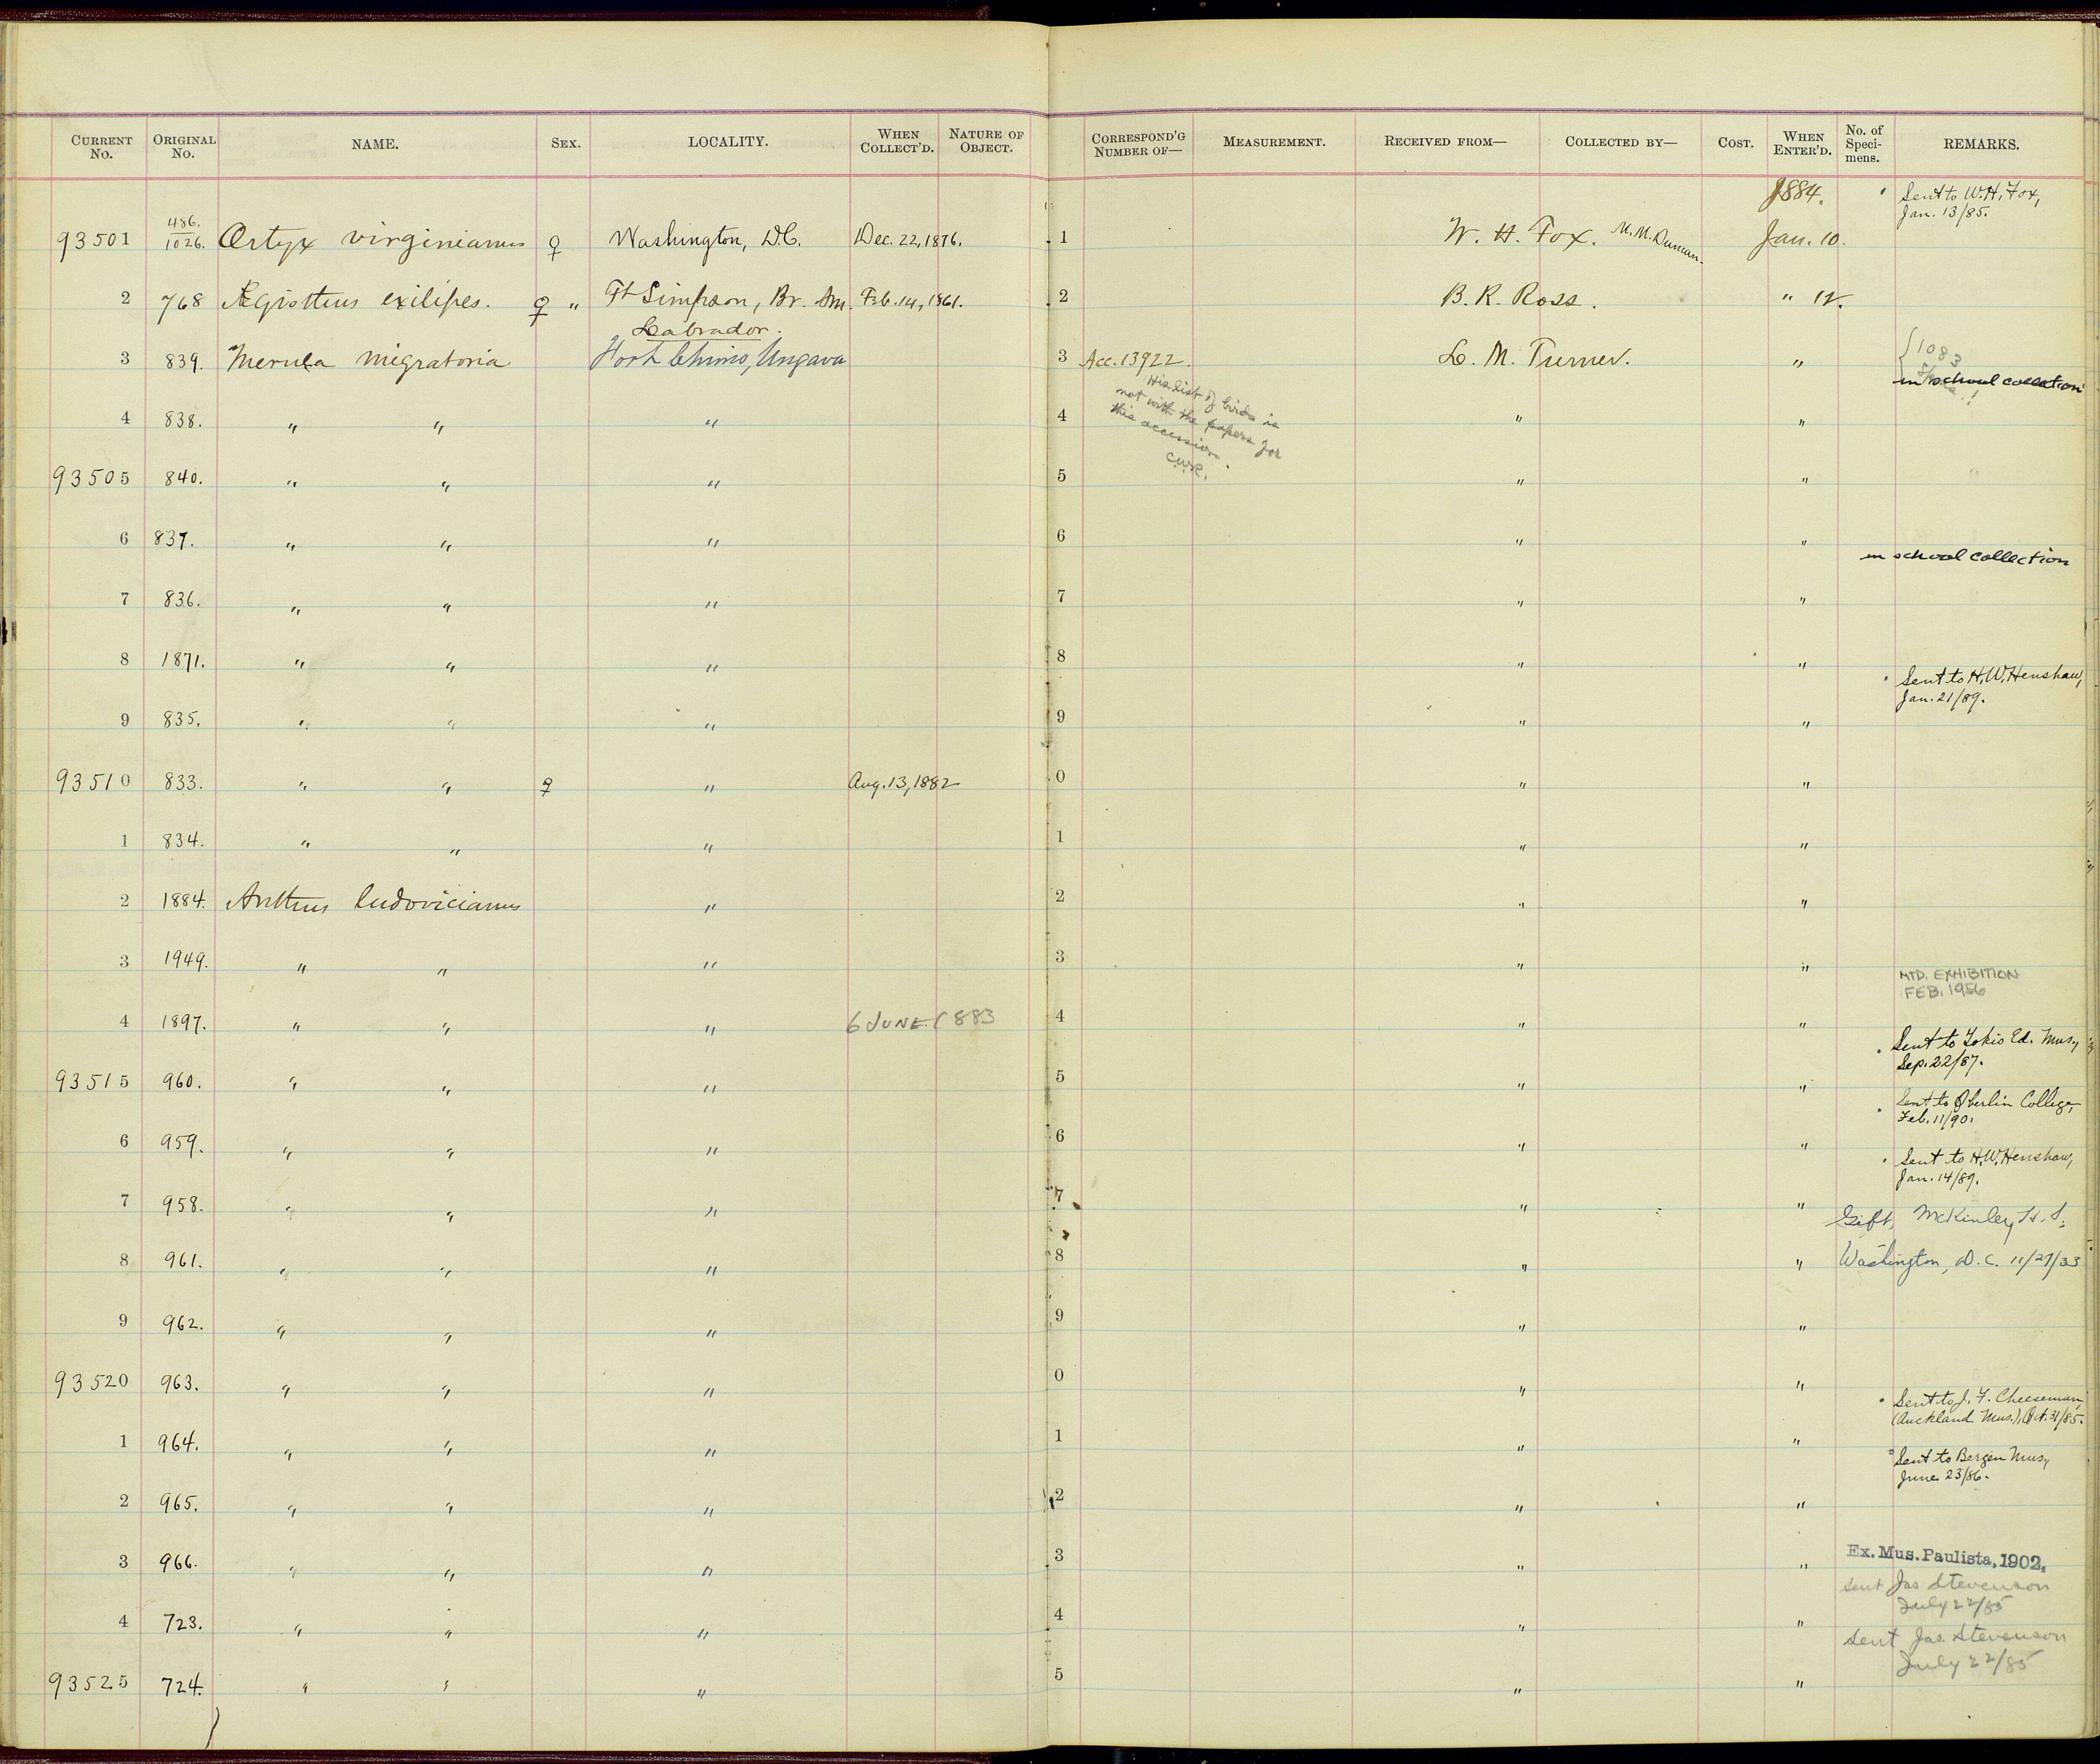 CURRENT No. ORIGINAL No. NAME. SEX. LOCALITY. WHEN COLLECT'D. NATURE OF OBJECT. CORRESPOND'G NUMBER OF— MEASUREMENT. RECEIVED FROM— COLLECTED BY— COST. WHEN ENTER'D. No. of Speci-mens. REMARKS.
1884. Sent to W.H. Fox,
Jan. 13/85.
93501 486. 1026. Ortyx virginianus ♀ Washington, D.C. Dec. 22, 1876. 1 W. H. Fox. Jan. 10.
2 768 Ægiothus exilipes. ♀ " Ft Simpson, Br. Am. Feb. 14, 1861. 2 B. R. Ross. " 12.
Labrador.
3 839. Merula migratoria Fort Chimo, Ungava 3 Acc. 13922. L. M. Turner. " 1083
in school collection
His list of birds is
not with the papers for
this accession.
CWR.
4 838. " " " 4 " "
93505 840. " " " 5 " "
6 837. " " " 6 " "
in school collection
7 836. " " " 7 " "
8 1871. " " " 8 " "
Sent to H.W. Henshaw,
Jan. 21/89.
9 835. " " " 9 " "
93510 833. " " ♀ " Aug. 13, 1882 0 " "
1 834. " " " 1 " "
2 1884. Anthus ludovicianus " 2 " "
3 1949. " " " 3 " "
MTD. EXHIBITION
FEB. 1956
4 1897. " " " 6 JUNE 1883 4 " "
Sent to Tokio Ed. Mus,
Sep. 22/87.
93515 960. " " " 5 " "
Sent to Oberlin College,
Feb. 11/90.
6 959. " " " 6 " "
Sent to H.W. Henshaw,
Jan. 14/89.
7 958. " " " 7 " "
Gift, McKinley H. S.
8 961. " " " 8 " " Washington, D.C. 11/27/33
9 962. " " " 9 " "
93520 963. " " " 0 " "
Sent to J. F. Cheeseman,
(Auckland Mus.), Oct. 31/85.
1 964. " " " 1 " "
Sent to Bergen Mus,
June 23/86.
2 965. " " " 2 " "
3 966. " " " 3 " " Ex. Mus. Paulista, 1902.
Sent Jas Stevenson
July 22/85
4 723. " " " 4 " "
Sent Jas. Stevenson
July 22/85
93525 724. " " " 5 " "